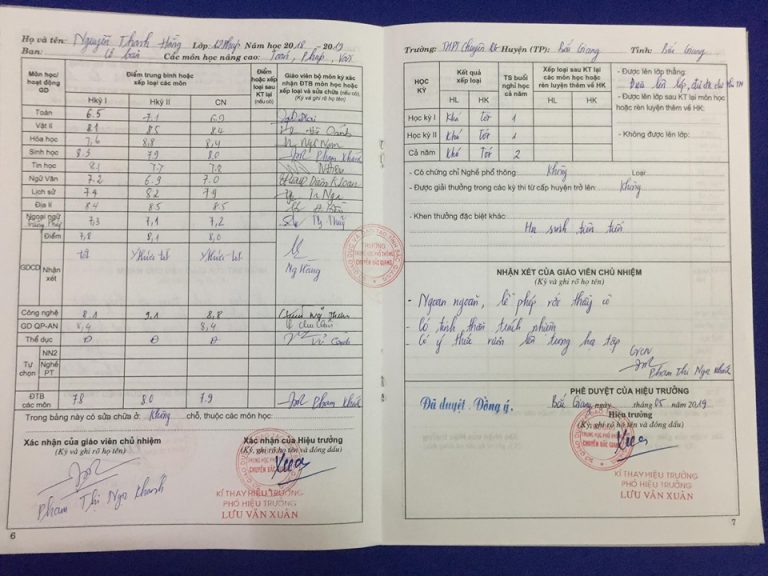 Họ và tên: Nguyễn Thanh Hằng Lớp: 12 Pháp Năm học 2018 - 2019
Ban: Cơ bản Các môn học nâng cao: Toán, Pháp, Văn
Môn học/ hoạt động GD
Điểm trung bình hoặc xếp loại các môn
Hkỳ I Hkỳ II CN
Điểm hoặc xếp loại sau KT lại (nếu có)
Giáo viên bộ môn ký xác nhận ĐTB môn học và sửa chữa (nếu có)
(Ký và ghi rõ họ tên)
Toán 6.5 7.1 6.9
Vật lí 8.1 8.5 8.4
Hóa học 7,6 8,8 8,4
Sinh học 8.3 7.9 8.0 Phạm Khánh
Tin học 8.1 7.7 7.8
Ngữ Văn 7.2 6.9 7.0
Lịch sử 7.4 8.2 7.9
Địa lí 8.4 8.5 8.5
Ngoại ngữ 7,3 7,1 7,2
Tiếng Pháp
GDCD
Điểm 7,8 8,1 8,0
Nhận xét tốt
Ng Hằng
Công nghệ 8.1 9.1 8,8
GD QP-AN 8,4 8,4
Thể dục Đ Đ Đ
Tự chọn
NN2
Nghề PT
ĐTB các môn 7.8 8.0 7.9 Phạm Khánh
Trong bảng này có sửa chữa ở: Không chỗ, thuộc các môn học:
Xác nhận của giáo viên chủ nhiệm
(Ký và ghi rõ họ tên)
Phạm Thị Nga Khánh
Xác nhận của Hiệu trưởng
(Ký và ghi rõ họ tên và đóng dấu)
TRƯỜNG
TRUNG HỌC PHỔ THÔNG
CHUYÊN BẮC GIANG
KÍ THAY HIỆU TRƯỞNG
PHÓ HIỆU TRƯỞNG
LƯU VĂN XUÂN
6
Trường: THPT Chuyên BG Huyện (TP): Bắc Giang Tỉnh: Bắc Giang
HỌC KỲ
Kết quả xếp loại
HL HK
TS buổi nghỉ học cả năm
Xếp loại sau KT lại các môn học hoặc rèn luyện thêm về HK
HL HK
Học kỳ I Khá tốt 1
Học kỳ II Khá tốt 1
Cả năm Khá Tốt 2
- Được lên lớp thẳng:
- Được lên lớp sau KT lại môn học hoặc rèn luyện thêm về HK:
- Không được lên lớp:
- Có chứng chỉ Nghề phổ thông: Không Loại:
- Được giải thưởng trong các kỳ thi từ cấp huyện trở lên: Không
- Khen thưởng đặc biệt khác: Học sinh tiên tiến
NHẬN XÉT CỦA GIÁO VIÊN CHỦ NHIỆM
(Ký và ghi rõ họ tên)
- Ngoan ngoãn, lễ phép với thầy cô
- Có tinh thần trách nhiệm
- Có ý thức vươn lên trong học tập
GVCN
Phạm Thị Nga Khánh
PHÊ DUYỆT CỦA HIỆU TRƯỞNG
Đã duyệt. Đồng ý.
Bắc Giang, ngày tháng 05 năm 2019
Hiệu trưởng
(Ký và ghi rõ họ tên và đóng dấu)
KÍ THAY HIỆU TRƯỞNG
PHÓ HIỆU TRƯỞNG
LƯU VĂN XUÂN
7